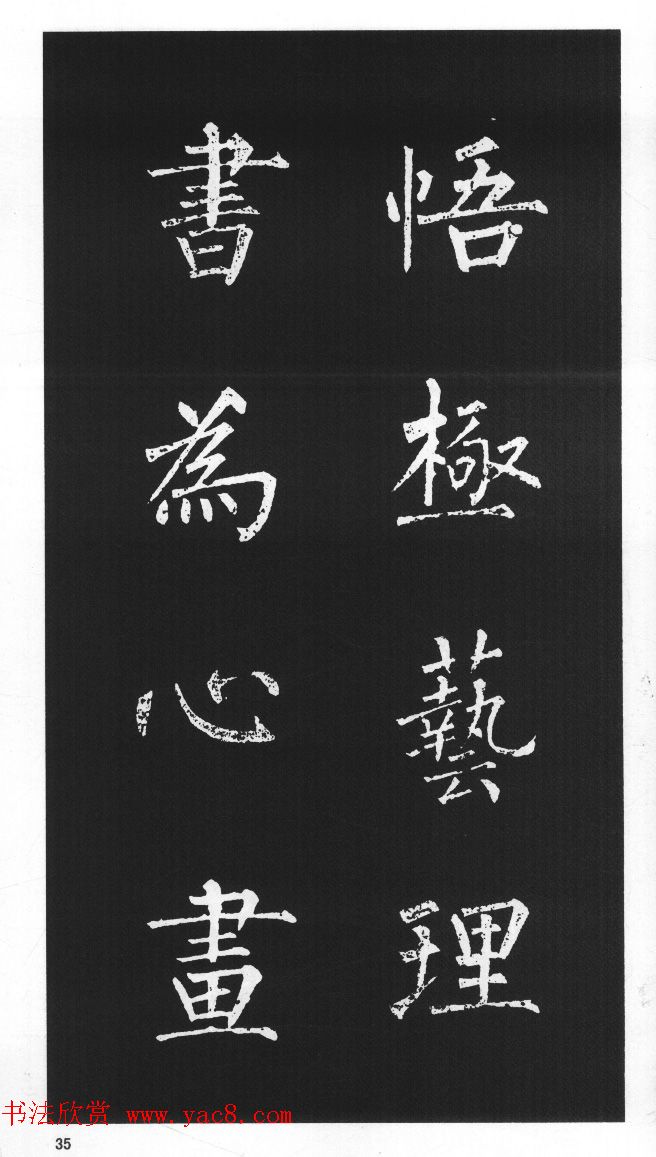 悟極藝理
書為心畫
书法欣赏 www.yac8.com
35